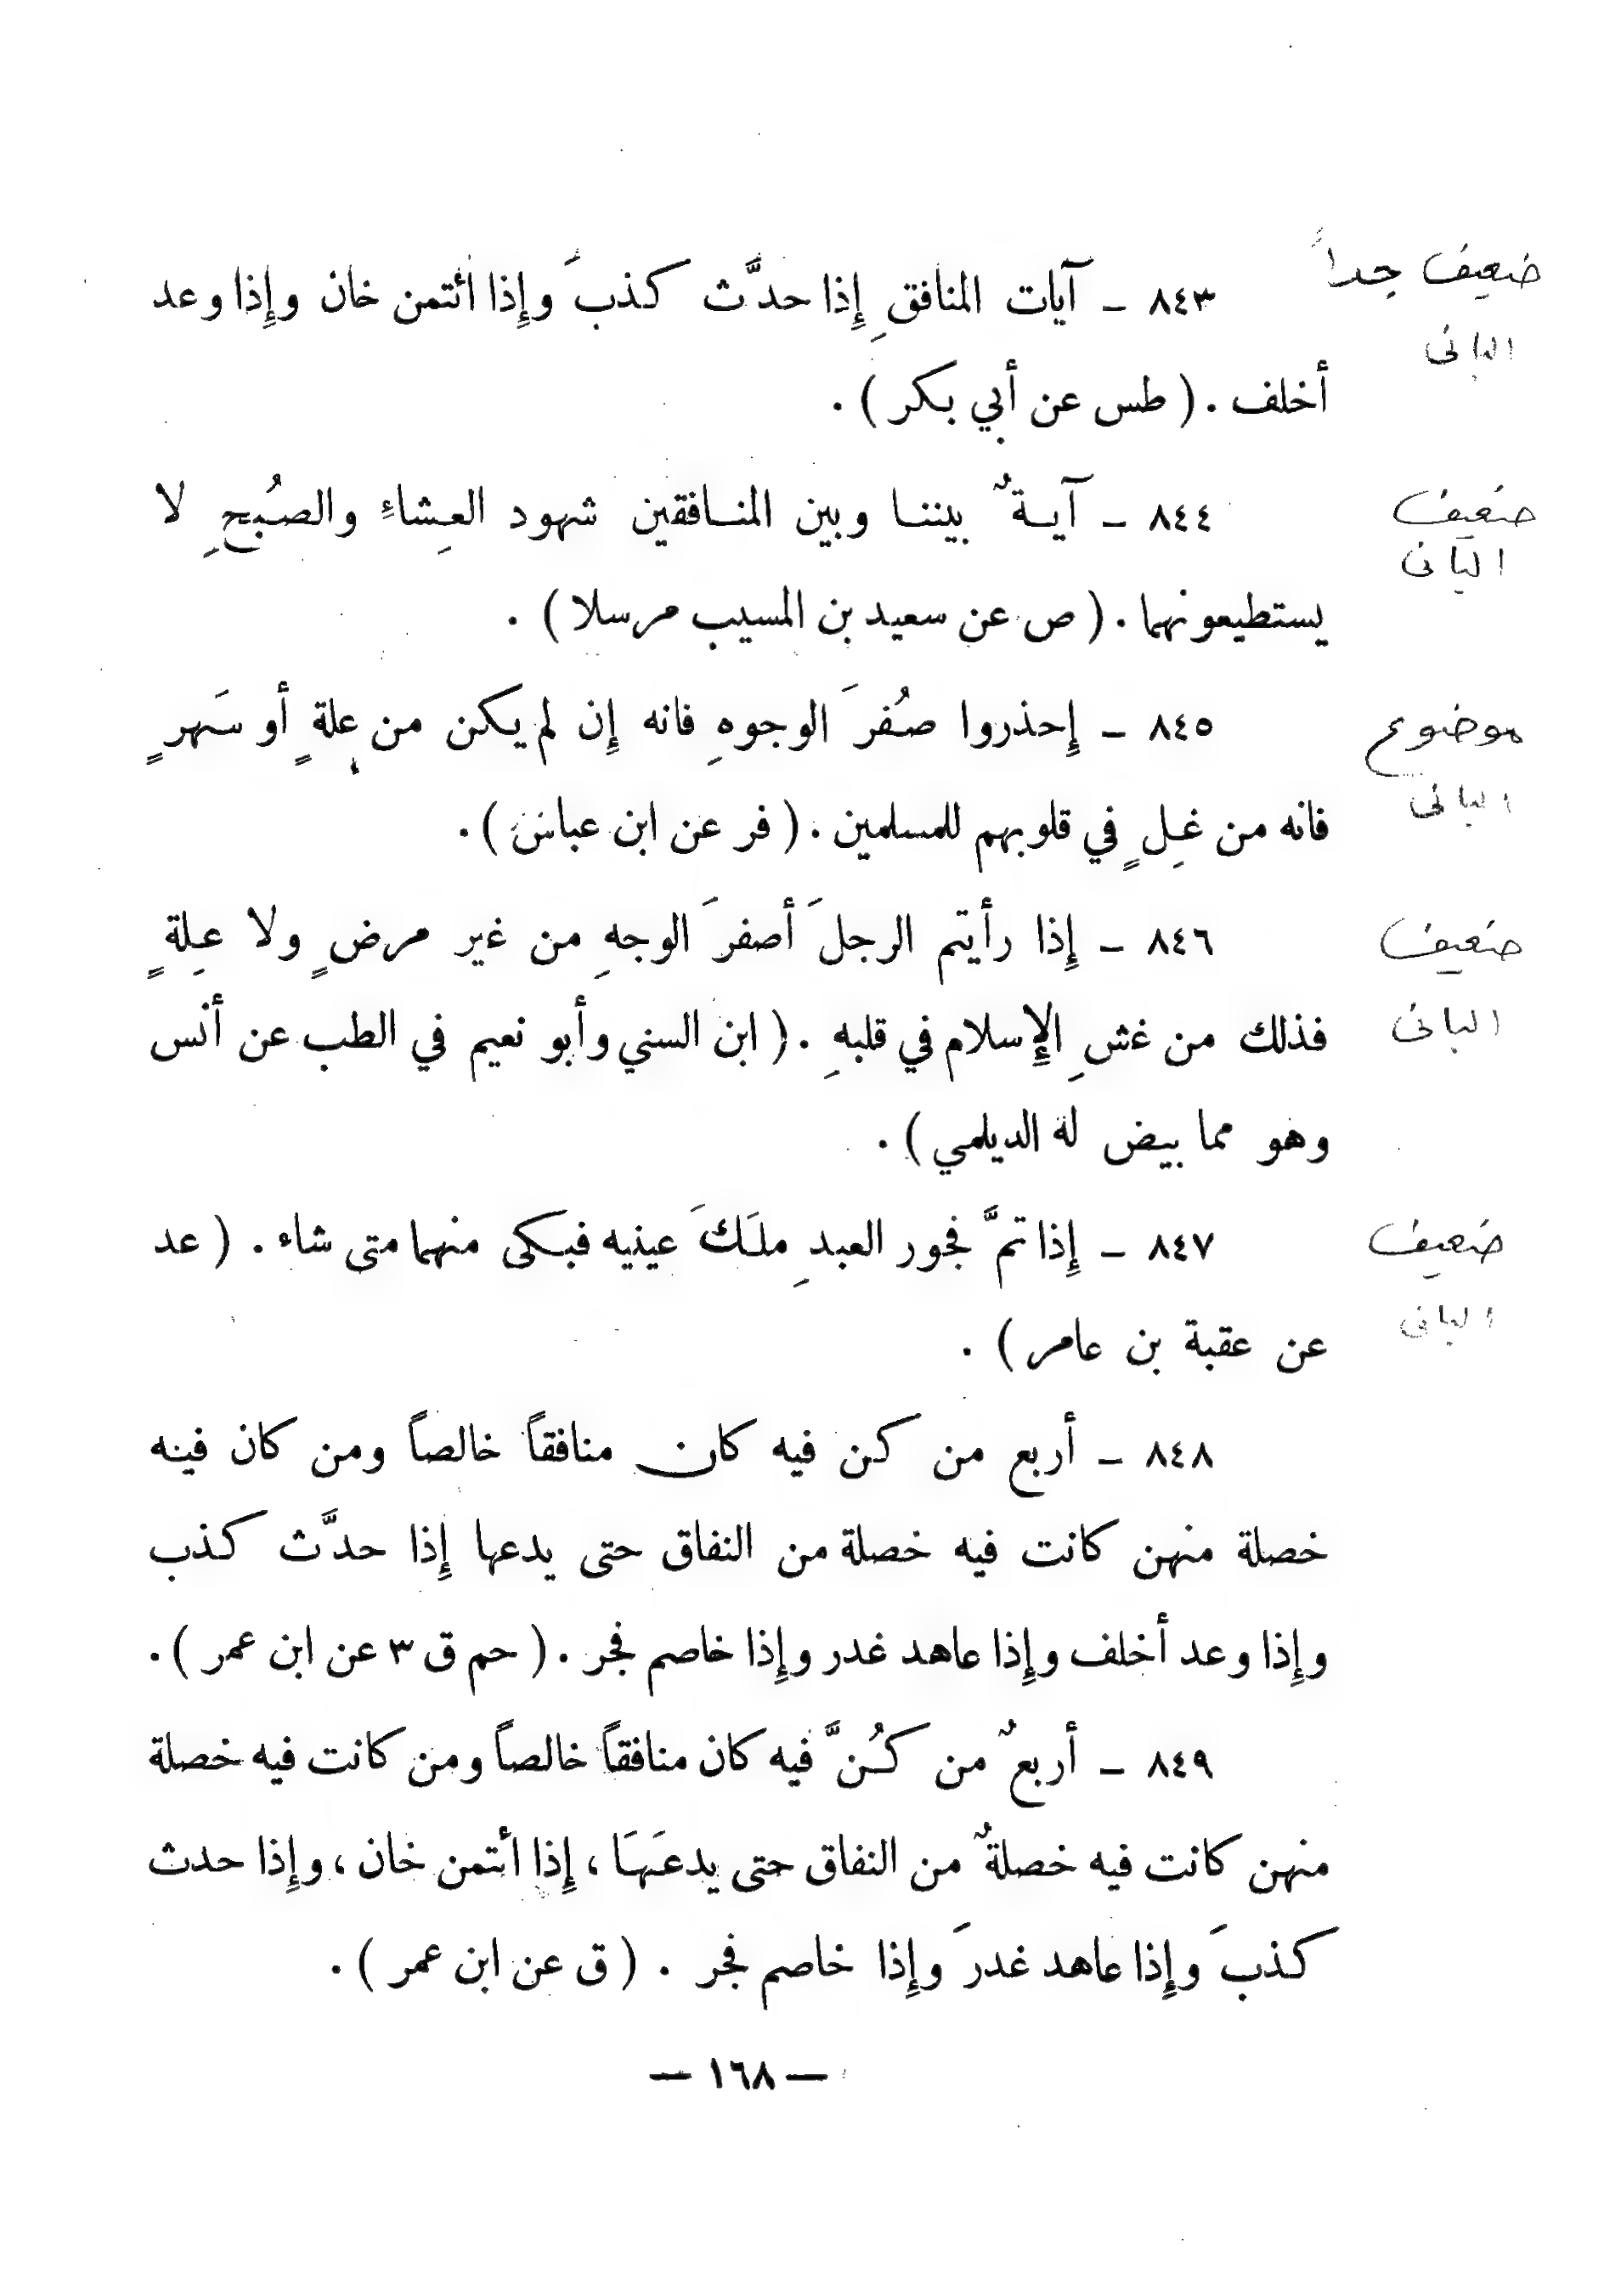 ضعيف جداً
٨٤٣ ـ آيات المنافقِ إِذا حدَّث كذبَ وإِذا ائتمن خان وإِذا وعد
البانى
أخلف . ( طس عن أبي بكر ) .
ضعيف
٨٤٤ ـ آيـةٌ بيننـا وبين المنـافقين شهود العِشاءِ والصُبحِ لا
البانى
يستطيعونهما . ( ص عن سعيد بن المسيب مرسلا ) .
موضوع
٨٤٥ ـ إِحذروا صُفرَ الوجوهِ فانه إِن لم يكن من علةٍ أو سَهرٍ
البانى
فانه من غِلٍ في قلوبهم للمسلمين . ( فر عن ابن عباس ) .
ضعيف
٨٤٦ ـ إِذا رأيتم الرجلَ أصفرَ الوجهِ من غير مرضٍ ولا عِلةٍ
البانى
فذلك من غشِ الإِسلام في قلبهِ . ( ابن السني وأبو نعيم في الطب عن أنس
وهو مما بيض له الديلمي ) .
ضعيف
٨٤٧ ـ إِذا تمَّ فجور العبدِ ملَكَ عينيه فبكى منهما متى شاء . ( عد
البانى
عن عقبة بن عامر ) .
٨٤٨ ـ أربع من كن فيه كان منافقاً خالصاً ومن كان فيه
خصلة منهن كانت فيه خصلة من النفاق حتى يدعها إِذا حدَّث كذب
وإِذا وعد أخلف وإِذا عاهد غدر وإِذا خاصم فجر . ( حم ق ٣ عن ابن عمر ) .
٨٤٩ ـ أربعٌ من كُنَّ فيه كان منافقاً خالصاً ومن كانت فيه خصلة
منهن كانت فيه خصلةٌ من النفاق حتى يدعَهَا ، إِذا أئتمن خان ، وإِذا حدث
كذبَ وإِذا عاهد غدرَ وإِذا خاصم فجر . ( ق عن ابن عمر ) .
— ١٦٨ —